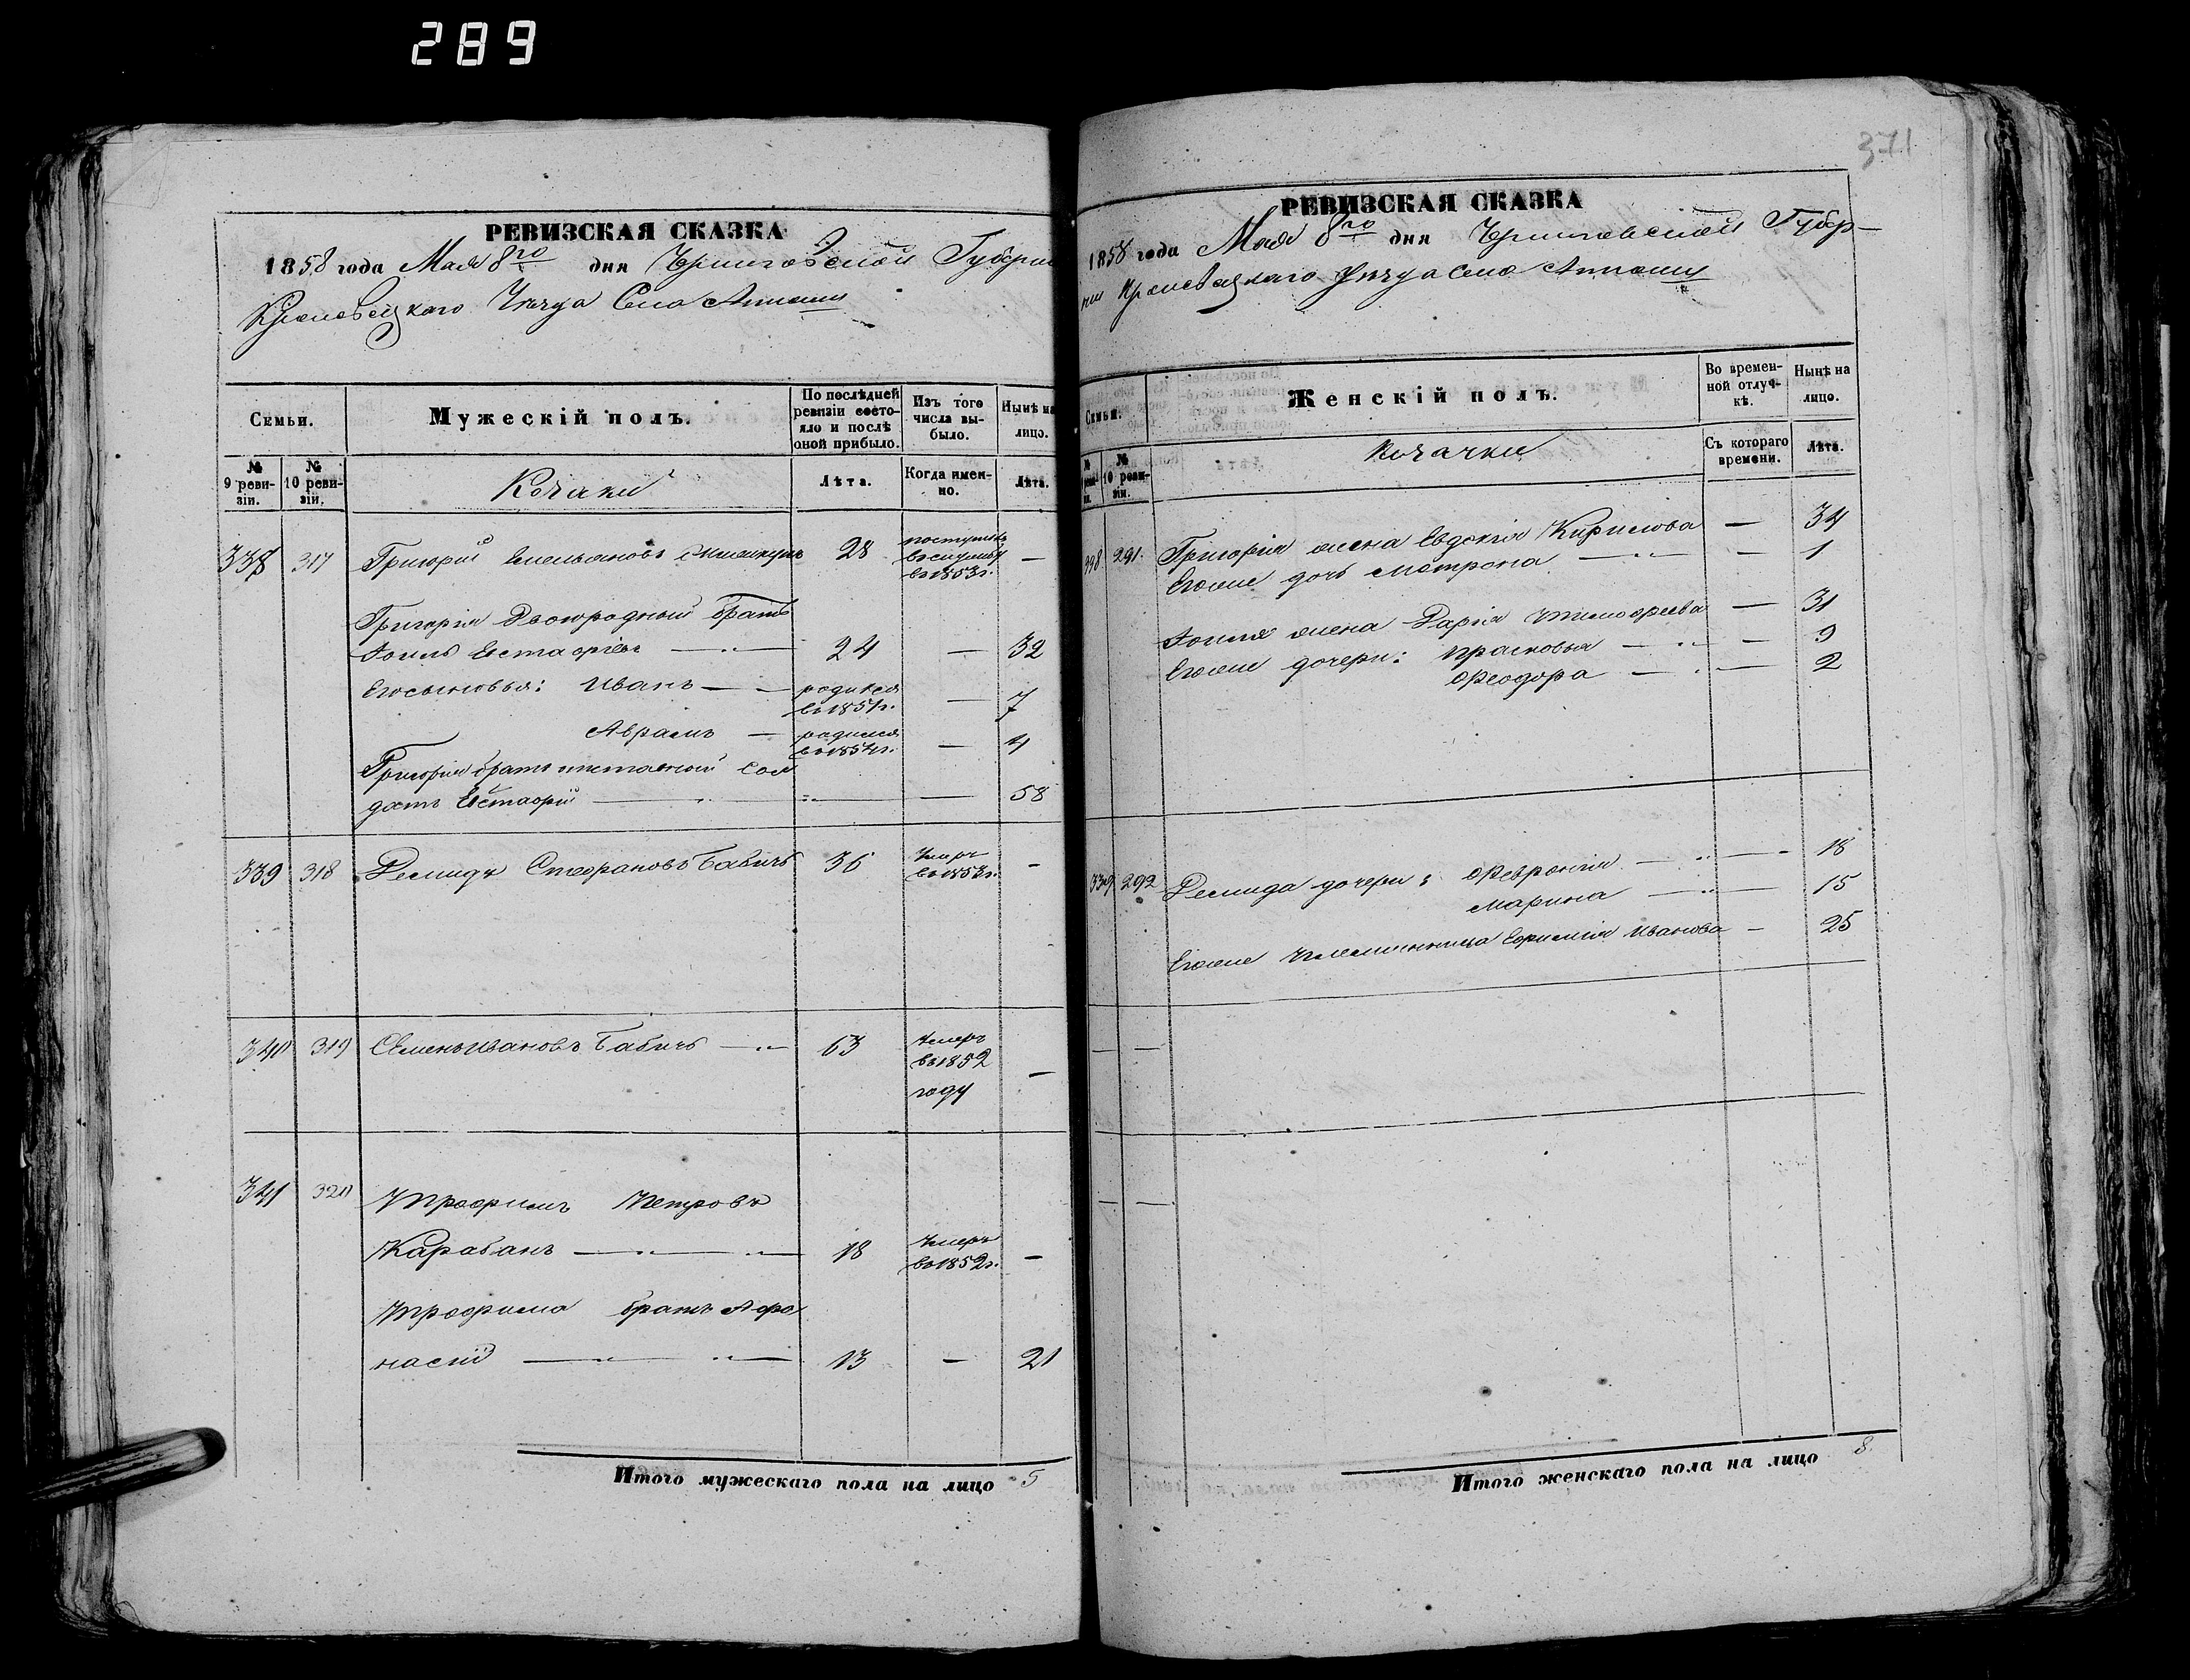 289
371
РЕВИЗСКАЯ СКАЗКА
1858 года Мая 8го дня Черниговской Губерніи
Кролевецкаго Уезда Села
Семьи.
Мужескій полъ.
По послѣдней ревизіи состояло и послѣ оной прибыло.
Изъ того числа выбыло.
Нынѣ на лицо.
№ 9 ревизіи.
№ 10 ревизіи.
Козаки
Лѣта.
Когда именно.
Лѣта.
338 317 Григорій Емельяновъ 28 поступилъ въ 1853г. —
Григорія Двоюродный братъ
Евстафіевъ — 24 — 32
Его сыновья: Иванъ — родился въ 1851г. — 7
Аврамъ — родился въ 1854г. — 4
Григорія братъ отставной сол
датъ Евстафій — — 58
339 318 Демидъ Стефановъ Бабичъ 36 Умеръ въ 1853г. —
340 319 Семенъ Ивановъ Бабичъ — 63 Умеръ въ 1852 году —
341 320 Трофимъ Петровъ
Карабанъ — 18 Умеръ въ 1852г. —
Трофима братъ Афа
насій — 13 — 21
Итого мужескаго пола на лицо 5
РЕВИЗСКАЯ СКАЗКА
1858 года Мая 8го дня Черниговской Губер-
ніи Кролевецкаго уезда села
Семьи.
Женскій полъ.
Во временной отлучкѣ.
Нынѣ на лицо.
№ 10 ревизіи.
Козачки
Съ котораго времени.
Лѣта.
338 291. Григорія жена Евдокія Кирилова — 34
Егоже дочь Матрона — — 1
жена Дарія Тимофеева — 31
Егоже дочери: Прасковья — — 9
Феодора — — 2
339 292 Демида дочери: Феврония — — 18
Марина — — 15
Егоже племянница Ефимія Иванова — 25
— —
— —
Итого женскаго пола на лицо 8